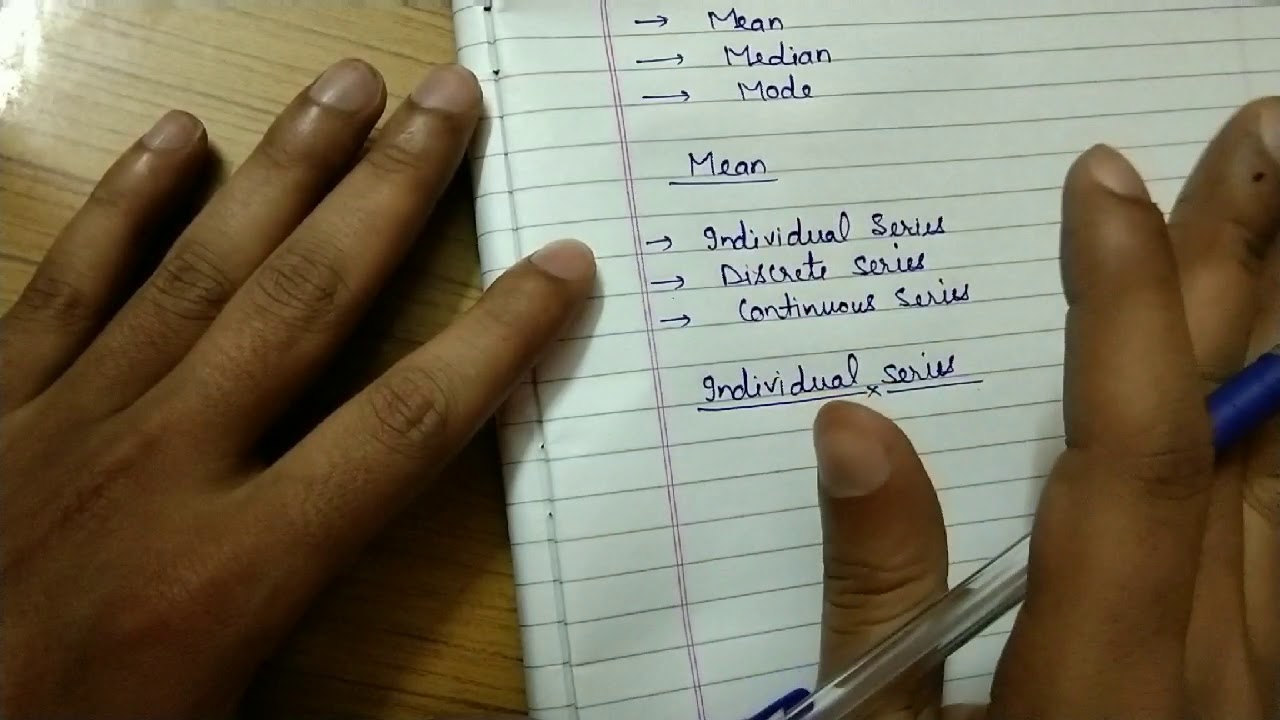 → Mean
→ Median
→ Mode
Mean
→ Individual Series
→ Discrete Series
→ Continuous Series
Individual x Series